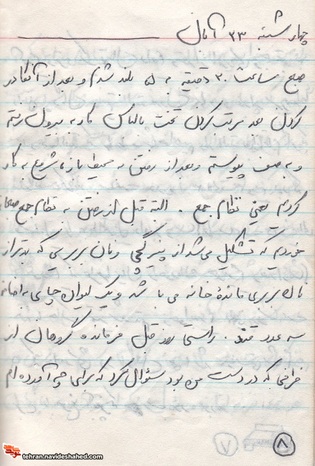 چهارشنبه ۲۳ آبان
صبح ساعت ۲۰ دقیقه به ۵ بلند شدم و بعد از آنکارد
کردن بعد مرتب کردن تخت با لباس کار به بیرون رفته
و به صف پیوسته و بعد از رفتن به محیط بازه شروع به کار
کردیم یعنی نظام جمع . البته قبل از رفتن به نظام جمع صبحانه
خوردیم که تشکیل می‌شد از پنیر گچی و نان بربری که بدتر از
نان بربری مانده خانه می باشد و یک لیوان چای به اضافه
سه عدد قند . راستی روز قبل فرمانده گروهان از
که در دست من بود سئوال کرد که برای چه آورده ام
۸
tehran.navideshahed.com